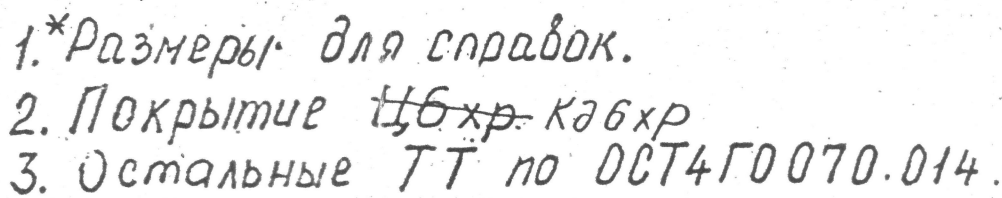 1.*Размеры для справок.
2. Покрытие Ц6хр. Кд6хр
3. Остальные ТТ по ОСТ4ГО070.014.